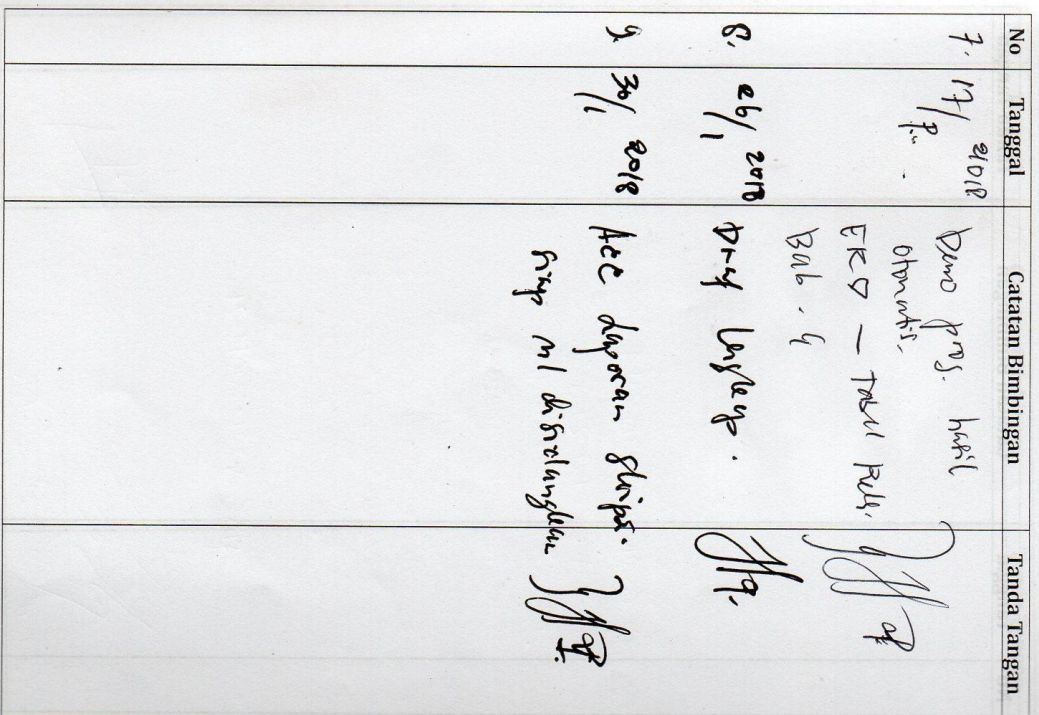 No Tanggal Catatan Bimbingan Tanda Tangan
7. 17/ 2018 Demo prog. hasil
otomatis.
EKG —
Bab. 4
8. 26/1 2018 Draf lengkap.
9. 30/1 2018 Acc Laporan skripsi.
siap disidangkan